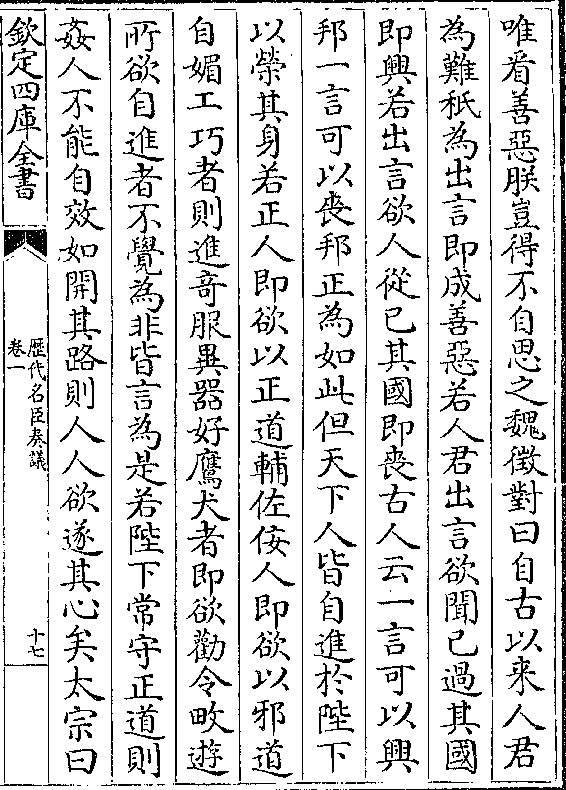 唯看善惡朕豈得不自思之魏徵對曰自古以来人君
為難秖為出言即成善惡若人君出言欲聞已過其國
即興若出言欲人從已其國即喪古人云一言可以興
邦一言可以喪邦正為如此但天下人皆自進於陛下
以榮其身若正人即欲以正道輔佐佞人即欲以邪道
自媚工巧者則進竒服異器好鷹犬者即欲勸令畋遊
所欲自進者不覺為非皆言為是若陛下常守正道則
姦人不能自效如開其路則人人欲遂其心矣太宗曰
欽定四庫全書
歷代名臣奏議
卷一
十七